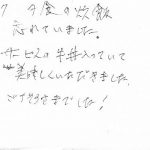 夕食の炊飯
忘れていました。
サービスの半丼入っていて
美味しくいただきました。
ごちそうさまでした！